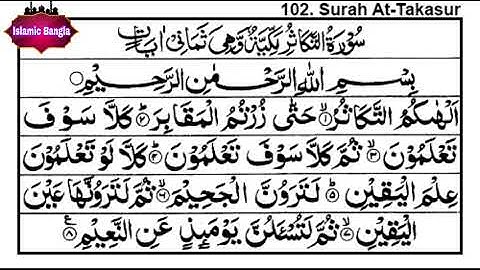 102. Surah At-Takasur
Islamic
Bangla
سُوْرَةُ التَّكَاثُرِ مَكِّيَّةٌ وَّهِيَ ثَمَانِيْ اٰيَاتٍ
بِسْمِ اللّٰهِ الرَّحْمٰنِ الرَّحِيْمِ
اَلْهٰىكُمُ التَّكَاثُرُ ۙ‏﴿۱﴾ حَتّٰى زُرْتُمُ الْمَقَابِرَ ؕ‏﴿۲﴾ كَلَّا سَوْفَ
تَعْلَمُوْنَ ۙ‏﴿۳﴾ ثُمَّ كَلَّا سَوْفَ تَعْلَمُوْنَ ؕ‏﴿۴﴾ كَلَّا لَوْ تَعْلَمُوْنَ
عِلْمَ الْيَقِيْنِ ؕ‏﴿۵﴾ لَتَرَوُنَّ الْجَحِيْمَ ۙ‏﴿۶﴾ ثُمَّ لَتَرَوُنَّهَا عَيْنَ
الْيَقِيْنِ ۙ‏﴿۷﴾ ثُمَّ لَتُسْـَٔلُنَّ يَوْمَئِذٍ عَنِ النَّعِيْمِ ﴿۸﴾